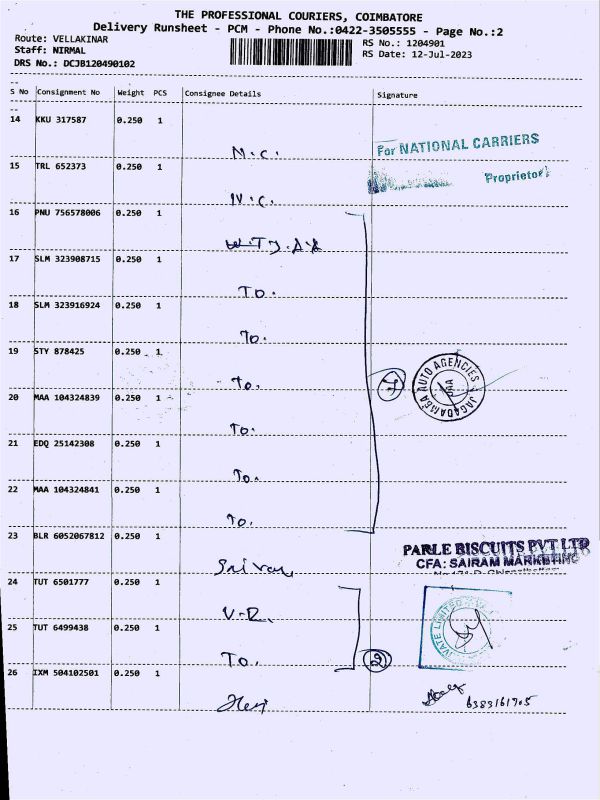 THE PROFESSIONAL COURIERS, COIMBATORE
Delivery Runsheet - PCM - Phone No.:0422-3505555 - Page No.:2
Route: VELLAKINAR
RS No.: 1204901
Staff: NIRMAL
RS Date: 12-Jul-2023
DRS No.: DCJB120490102
S No Consignment No Weight PCS Consignee Details Signature
14 KKU 317587 0.250 1
N.C.
For NATIONAL CARRIERS
15 TRL 652373 0.250 1
Proprietor
N.C.
16 PNU 756578006 0.250 1
17 SLM 323908715 0.250 1
To.
18 SLM 323916924 0.250 1
To.
19 STY 878425 0.250 1
To.
7
JAGADAMBA AUTO AGENCIES
20 MAA 104324839 0.250 1
To.
21 EDQ 25142308 0.250 1
To.
22 MAA 104324841 0.250 1
To.
23 BLR 6052067812 0.250 1
PARLE BISCUITS PVT LTD
CFA: SAIRAM MARKETING
Sairam
24 TUT 6501777 0.250 1
V.R.
25 TUT 6499438 0.250 1
To.
2
26 IXM 504102501 0.250 1
6383161705